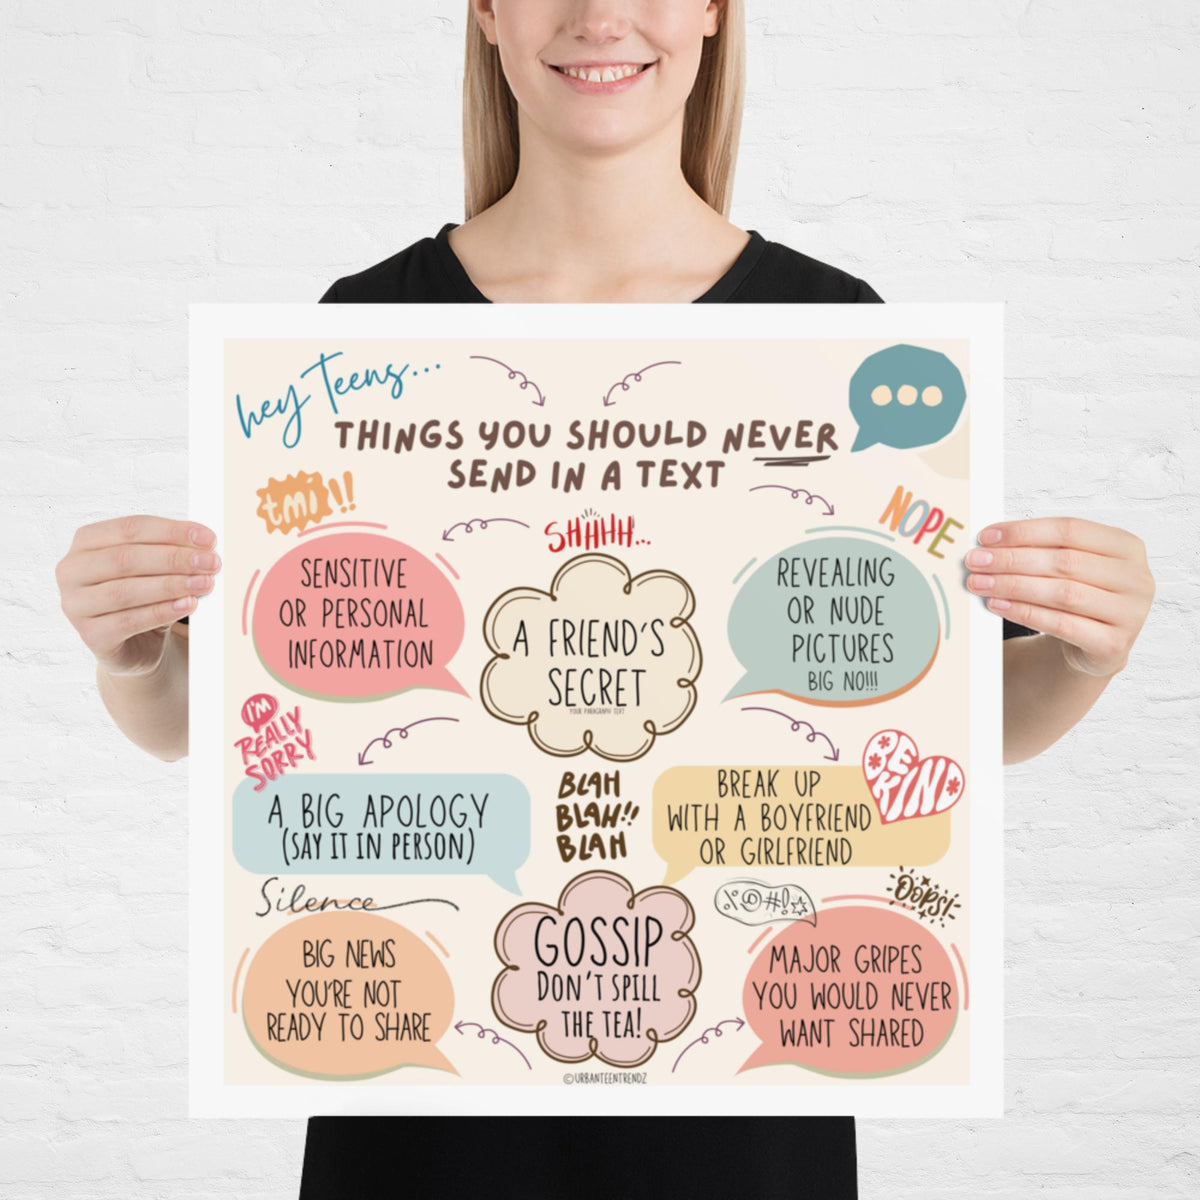 hey Teens...
THINGS YOU SHOULD NEVER
SEND IN A TEXT
tmi!!
SHHHH...
NOPE
SENSITIVE
OR PERSONAL
INFORMATION
A FRIEND'S
SECRET
YOUR PARAGRAPH TEXT
REVEALING
OR NUDE
PICTURES
BIG NO!!!
I'M
REALLY
SORRY
A BIG APOLOGY
(SAY IT IN PERSON)
BLAH
BLAH!!
BLAH
BREAK UP
WITH A BOYFRIEND
OR GIRLFRIEND
BE
KIND
Silence
BIG NEWS
YOU'RE NOT
READY TO SHARE
GOSSIP
DON'T SPILL
THE TEA!
OOPS!
MAJOR GRIPES
YOU WOULD NEVER
WANT SHARED
©URBANTEENTRENDZ